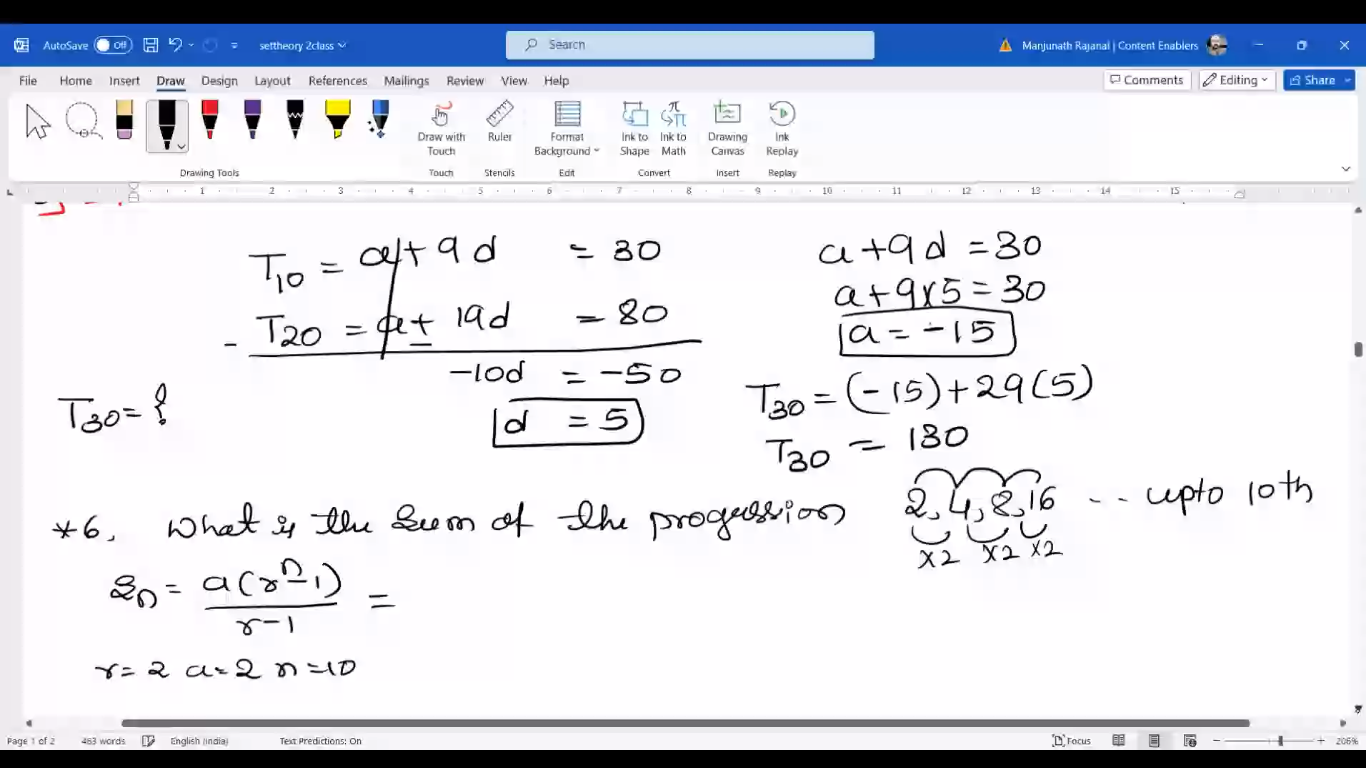 AutoSave Off settheory 2class Search Manjunath Rajanal | Content Enablers
File Home Insert Draw Design Layout References Mailings Review View Help Comments Editing Share
Draw with Touch Ruler Format Background Ink to Shape Ink to Math Drawing Canvas Ink Replay
Drawing Tools Touch Stencils Edit Convert Insert Replay
1 2 3 4 5 6 7 8 9 10 11 12 13 14 15
T10 = a + 9d = 30
T20 = a + 19d = 80
-10d = -50
d = 5
T30 = ?
a + 9d = 30
a + 9x5 = 30
a = -15
T30 = (-15) + 29(5)
T30 = 130
*6. What is the Sum of the progression 2, 4, 8, 16 -- upto 10th
x2 x2 x2
Sn = a(r^n - 1) / r - 1 =
r = 2 a = 2 n = 10
Page 1 of 2 463 words English (India) Text Predictions: On Focus 206%